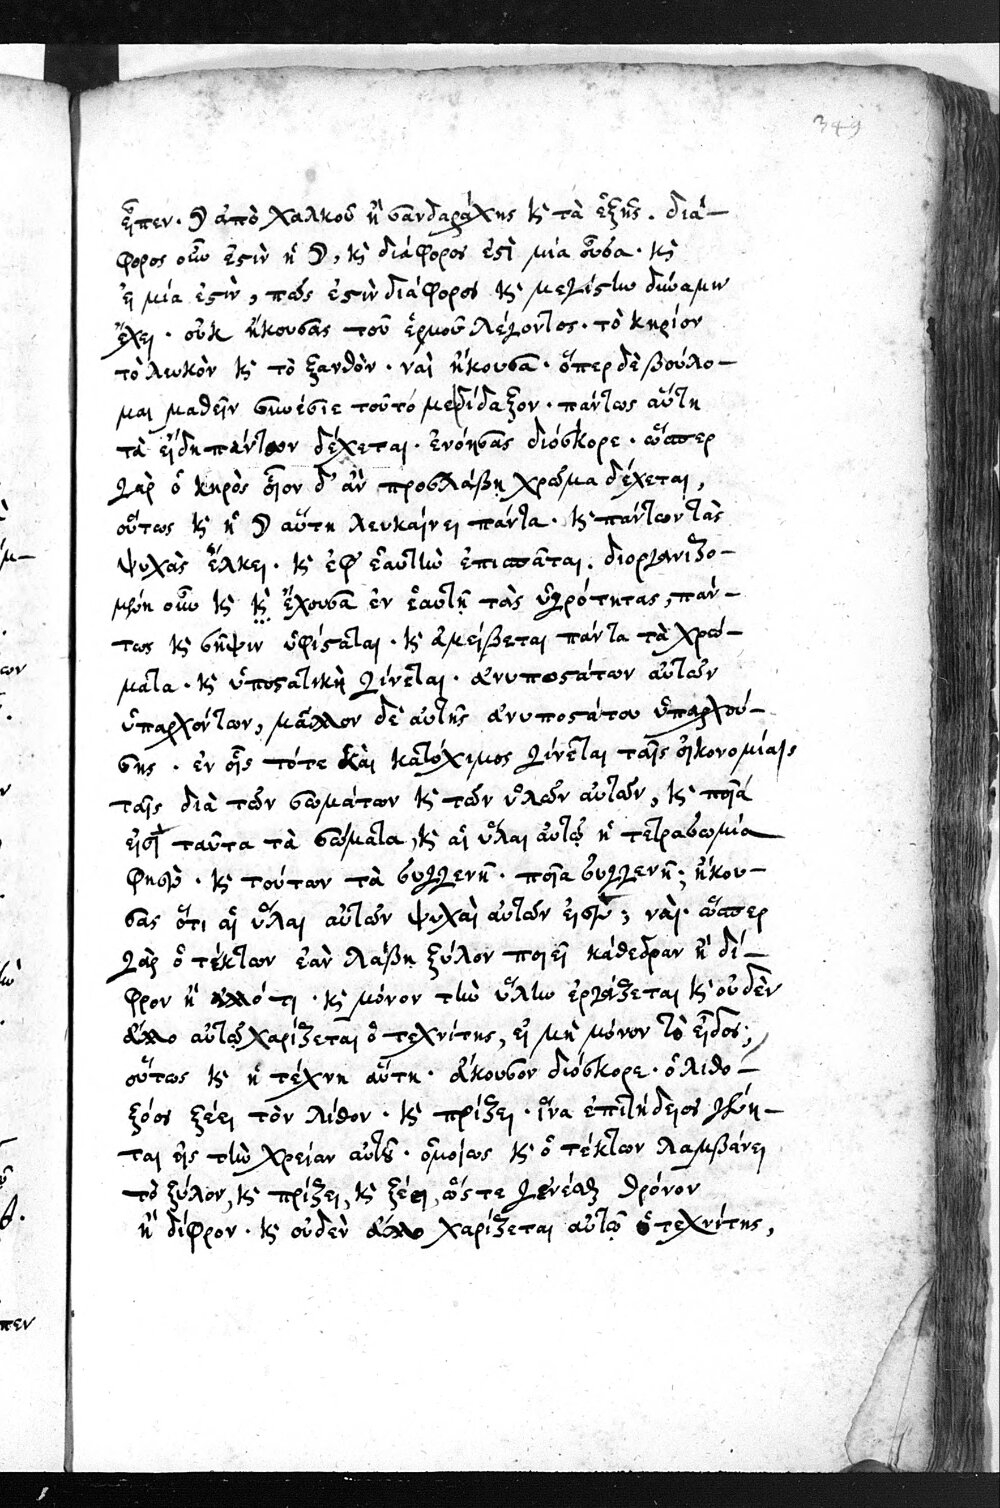 349
εἶπεν · ☽ ἀπὸ χαλκοῦ ἢ σανδαράχης κ̀ τὰ ἑξῆς. διά–
φορος οὖν ἐστὶν ἡ ☽, κ̀ διάφορος ἐστὶ μία οὖσα · κ̀
εἰ μία ἐστὶν, πῶς ἐστὶν διάφορος κ̀ μεγίστην δύναμιν
ἔχει · οὐκ ἤκουσας τοῦ ἑρμοῦ λέγοντος · τὸ κηρίον
τὸ λευκὸν κ̀ τὸ ξανθὸν · ναὶ ἤκουσα · ὅπερ δὲ βούλο–
μαι μαθεῖν συνέσιε τοῦτό με δίδαξον · πάντως αὕτη
τὰ εἴδη πάντων δέχεται · ἐνόησας διόσκορε · ὥσπερ
γὰρ ὁ κηρὸς οἷον δ' ἂν προσλάβῃ χρῶμα δέχεται,
οὕτως κ̀ ἡ ☽ αὕτη λευκαίνει πάντα · κ̀ πάντων τὰς
ψυχὰς ἕλκει · κ̀ ἐφ ἑαυτὴν ἐπισπᾶται. διοργανιζο–
μένη οὖν κ̀ κ̀ ἔχουσα ἐν ἑαυτῇ τὰς ὑγρότητας, πάν–
τως κ̀ σῆψιν ὑφίσταται · κ̀ ἀμείβεται πάντα τὰ χρώ–
ματα · κ̀ ὑποστατικὴ γίνεται · ἀνυποστάτων αὐτῶν
ὑπαρχόντων, μᾶλλον δὲ αὐτῆς ἀνυποστάτου ὑπαρχού–
σης · ἐν οἷς τότε καὶ κατόχιμος γίνεται ταῖς οἰκονομίαις
ταῖς διὰ τῶν σωμάτων κ̀ τῶν ὑλῶν αὐτῶν, κ̀ ποῖά
εἰσὶ ταῦτα τὰ σώματα, κ̀ αἱ ὗλαι αὐτῶν ἡ τετρασωμία
φησὶν · κ̀ τούτων τὰ συγγενῆ · ποῖα συγγενῆ; ἤκου–
σας ὅτι αἱ ὗλαι αὐτῶν ψυχαὶ αὐτῶν εἰσὶν; ναὶ · ὥσπερ
γὰρ ὁ τέκτων ἐὰν λάβῃ ξύλον ποιεῖ κάθεδραν ἢ δί–
φρον ἢ ἄλλό τι · κ̀ μόνον τὴν ὕλην ἐργάζεται κ̀ οὐδὲν
ἄλλο αὐτῷ χαρίζεται ὁ τεχνίτης, εἰ μὴ μόνον τὸ εἶδος;
οὕτως κ̀ ἡ τέχνη αὕτη · ἄκουσον διόσκορε · ὁ λιθο–
ξόος ξέει τὸν λίθον · κ̀ πρίζει · ἵνα ἐπιτήδειος γένη–
ται εἰς τὴν χρείαν αὐτοῦ · ὁμοίως κ̀ ὁ τέκτων λαμβάνει
τὸ ξύλον, κ̀ πρίζει, κ̀ ξέει, ὥστε γενέσθαι θρόνον
ἢ δίφρον · κ̀ οὐδὲν ἄλλο χαρίζεται αὐτῷ ὁ τεχνίτης,